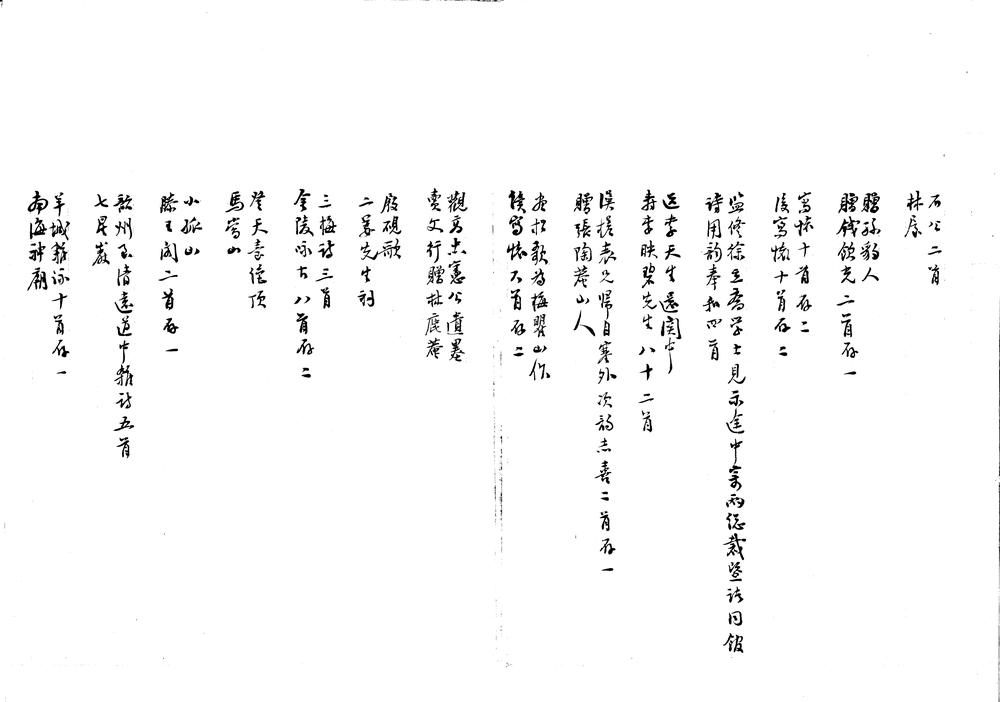 石公二首
林屋
贈孫豹人
贈錢飲光二首存一
寫懷十首存二
後寫懷十首存二
監修徐立齋學士見示途中寄兩總裁暨諸同館
詩用韵奉和四首
送李天生還關中
壽李映碧先生八十二首
漢槎表兄歸自塞外次韵志喜二首存一
贈張陶菴山人
畫松歌為梅瞿山作
續寫懷六首存二
觀高忠憲公遺墨
賣文行贈杜鹿菴
殷硯歌
二暮先生祠
三梅詩三首
金陵咏古八首存二
登天臺絕頂
馬當山
小孤山
滕王閣二首存一
韶州至清遠道中雜詩五首
七星巖
羊城雜咏十首存一
南海神廟